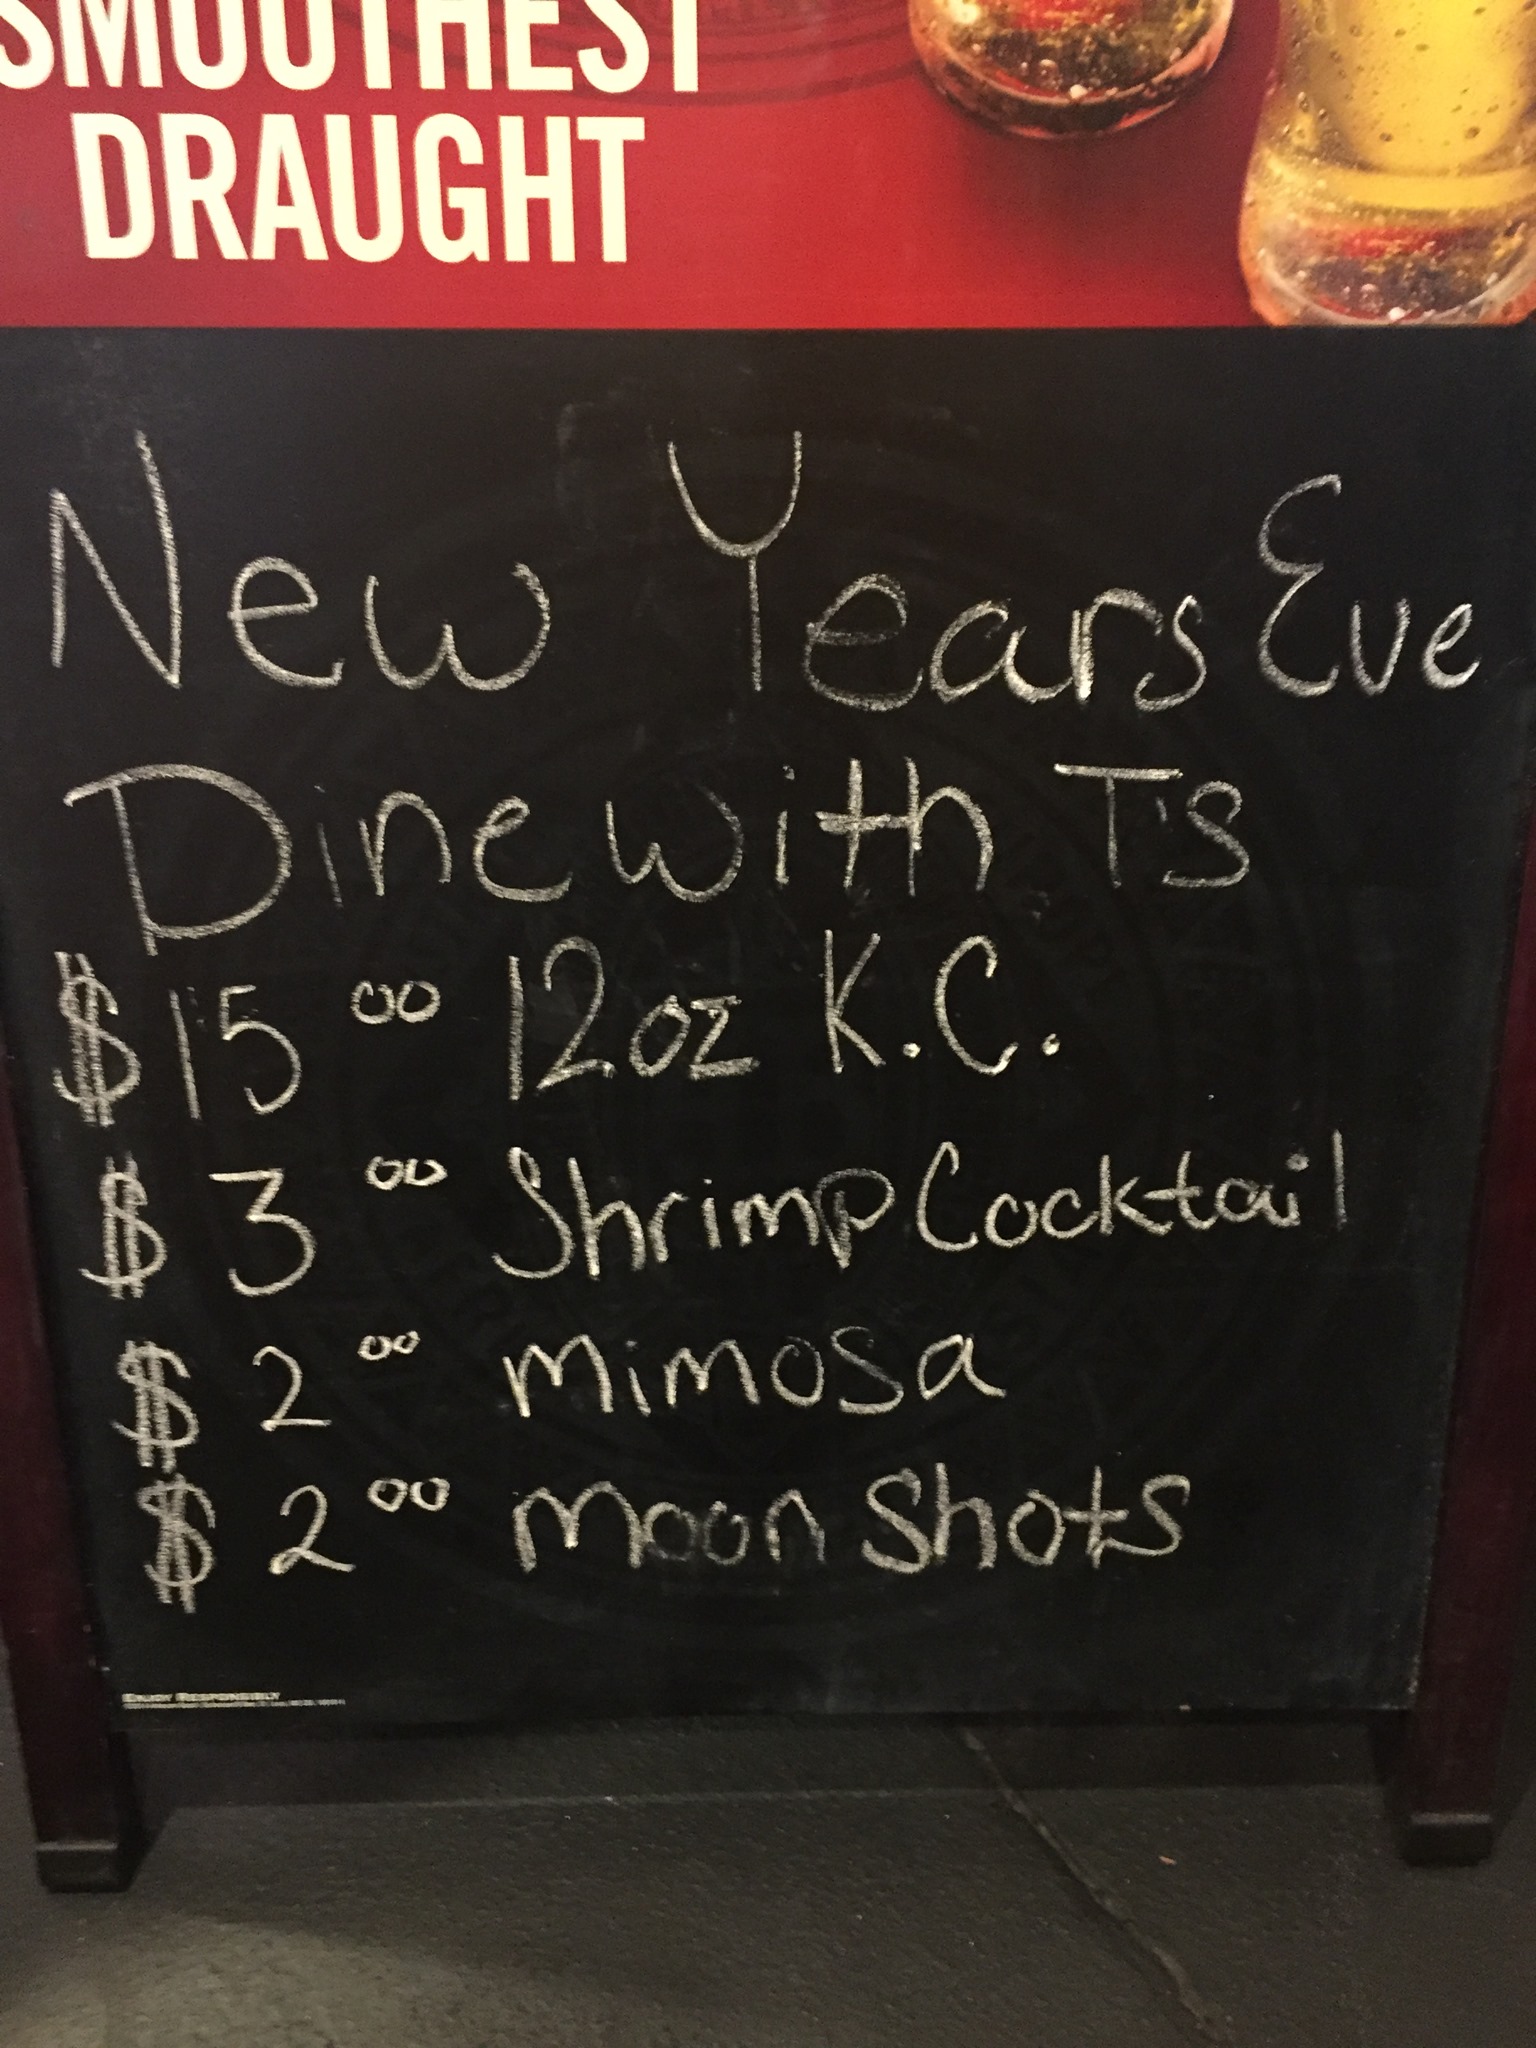 SMOOTHEST
DRAUGHT
New Years Eve
Dine with T's
$15 00 12oz K.C.
$ 3 00 Shrimp Cocktail
$ 2 00 mimosa
$ 2 00 moon shots
ENJOY RESPONSIBLY